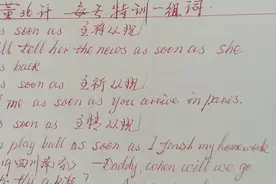 董北计 每考特训一组词.
s soon as 主将从现
ll tell her the news as soon as she
s back
s soon as 主祈从现
l me as soon as you arrive in paris.
s soon as 主情从现
play ball as soon as I finish my homework
四川 —Daddy, when will we go